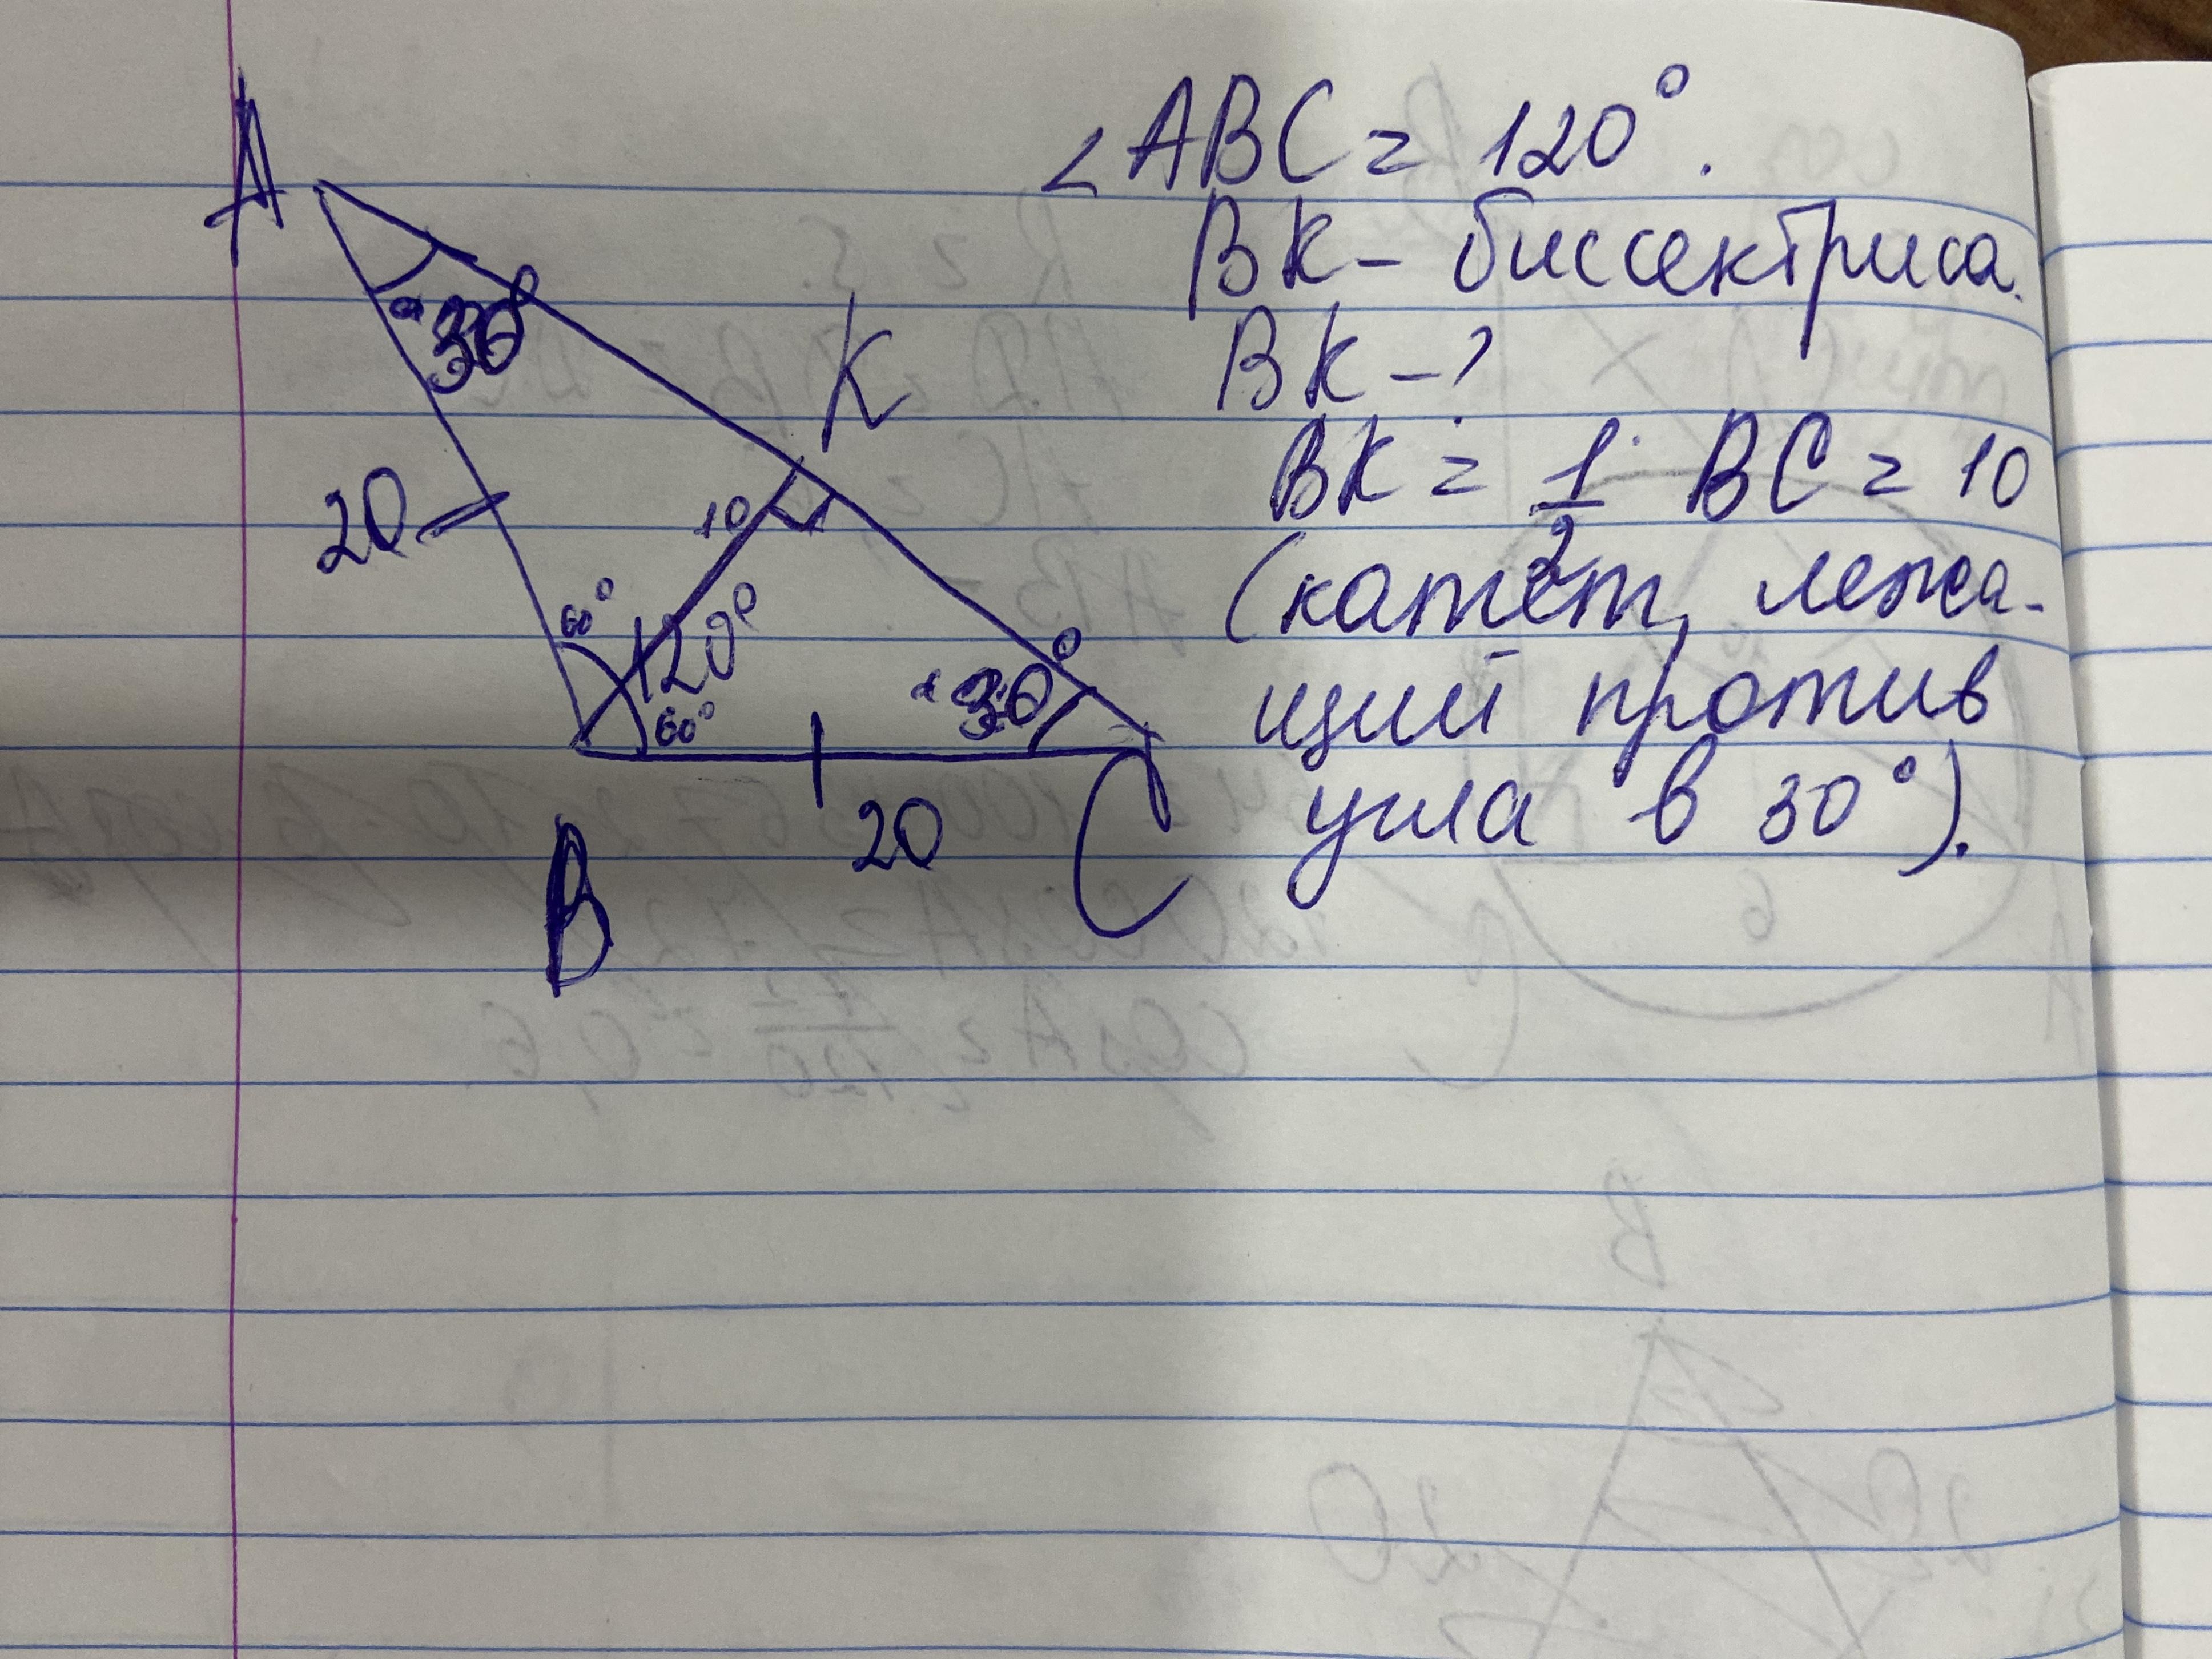 A
∠ABC = 120°.
BK – биссектриса.
30°
K
BK – ?
20
10
BK = 1/2 BC = 10
(катет, лежа-
60°
120°
30°
60°
щий против
20
C
угла в 30°).
B